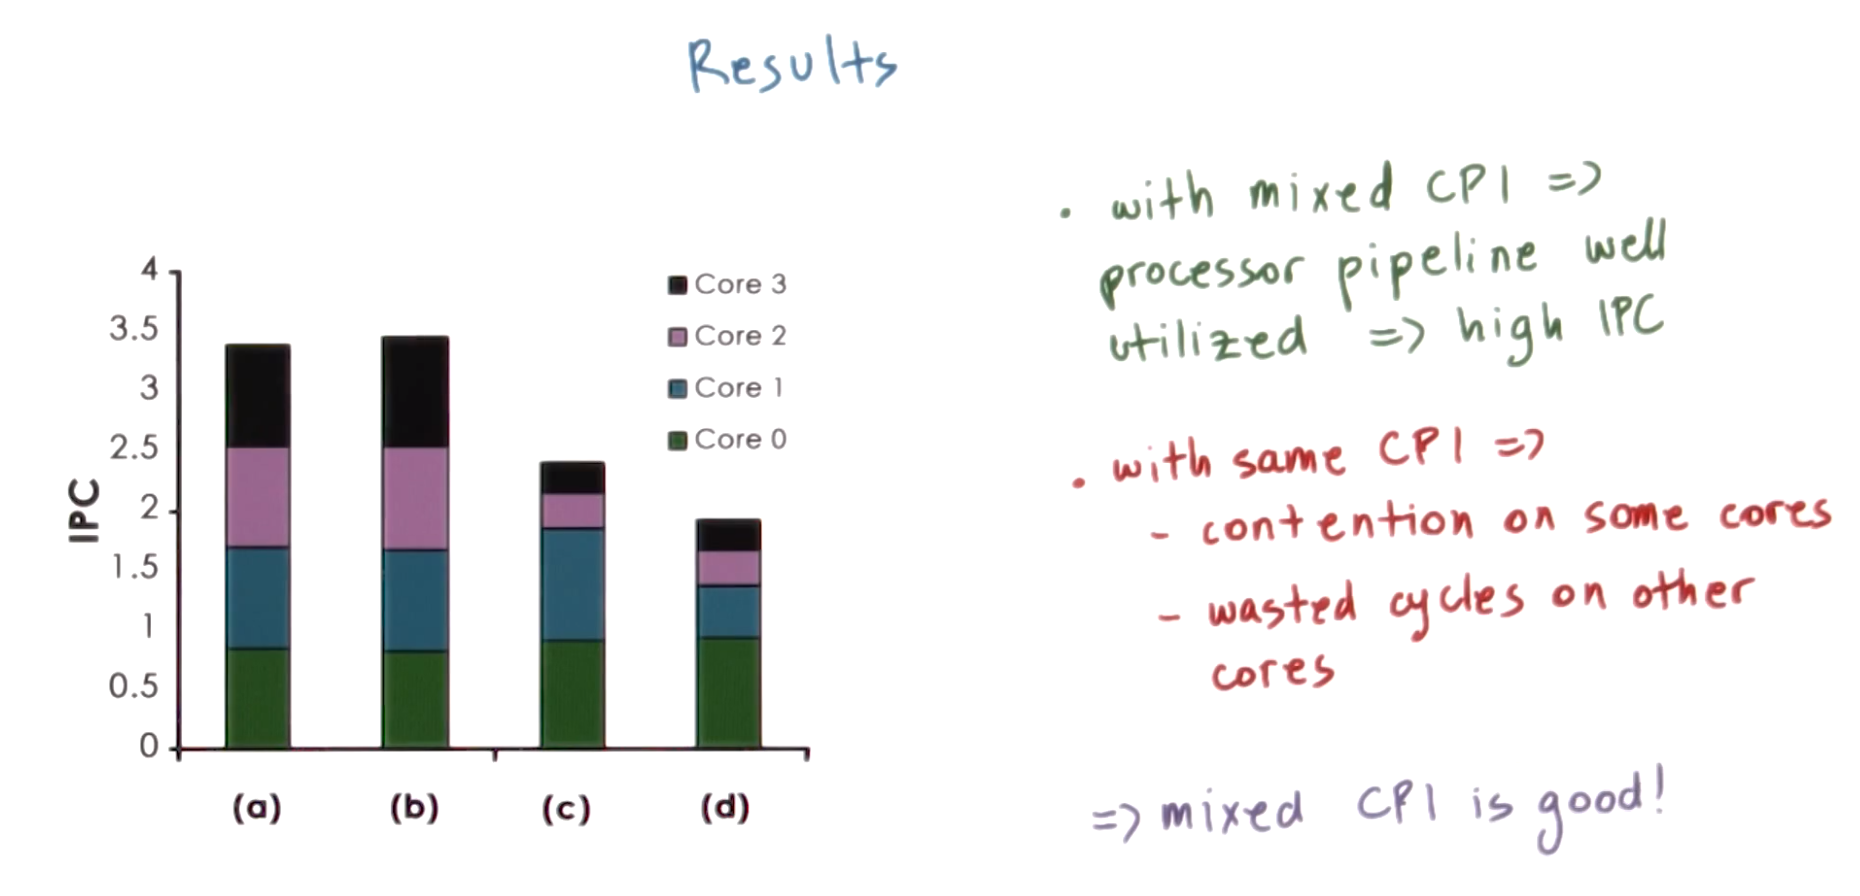 Results
4
3.5
3
2.5
2
1.5
1
0.5
0
IPC
(a) (b) (c) (d)
Core 3
Core 2
Core 1
Core 0
• with mixed CPI =>
processor pipeline well
utilized => high IPC
• with same CPI =>
- contention on some cores
- wasted cycles on other
cores
=> mixed CPI is good!